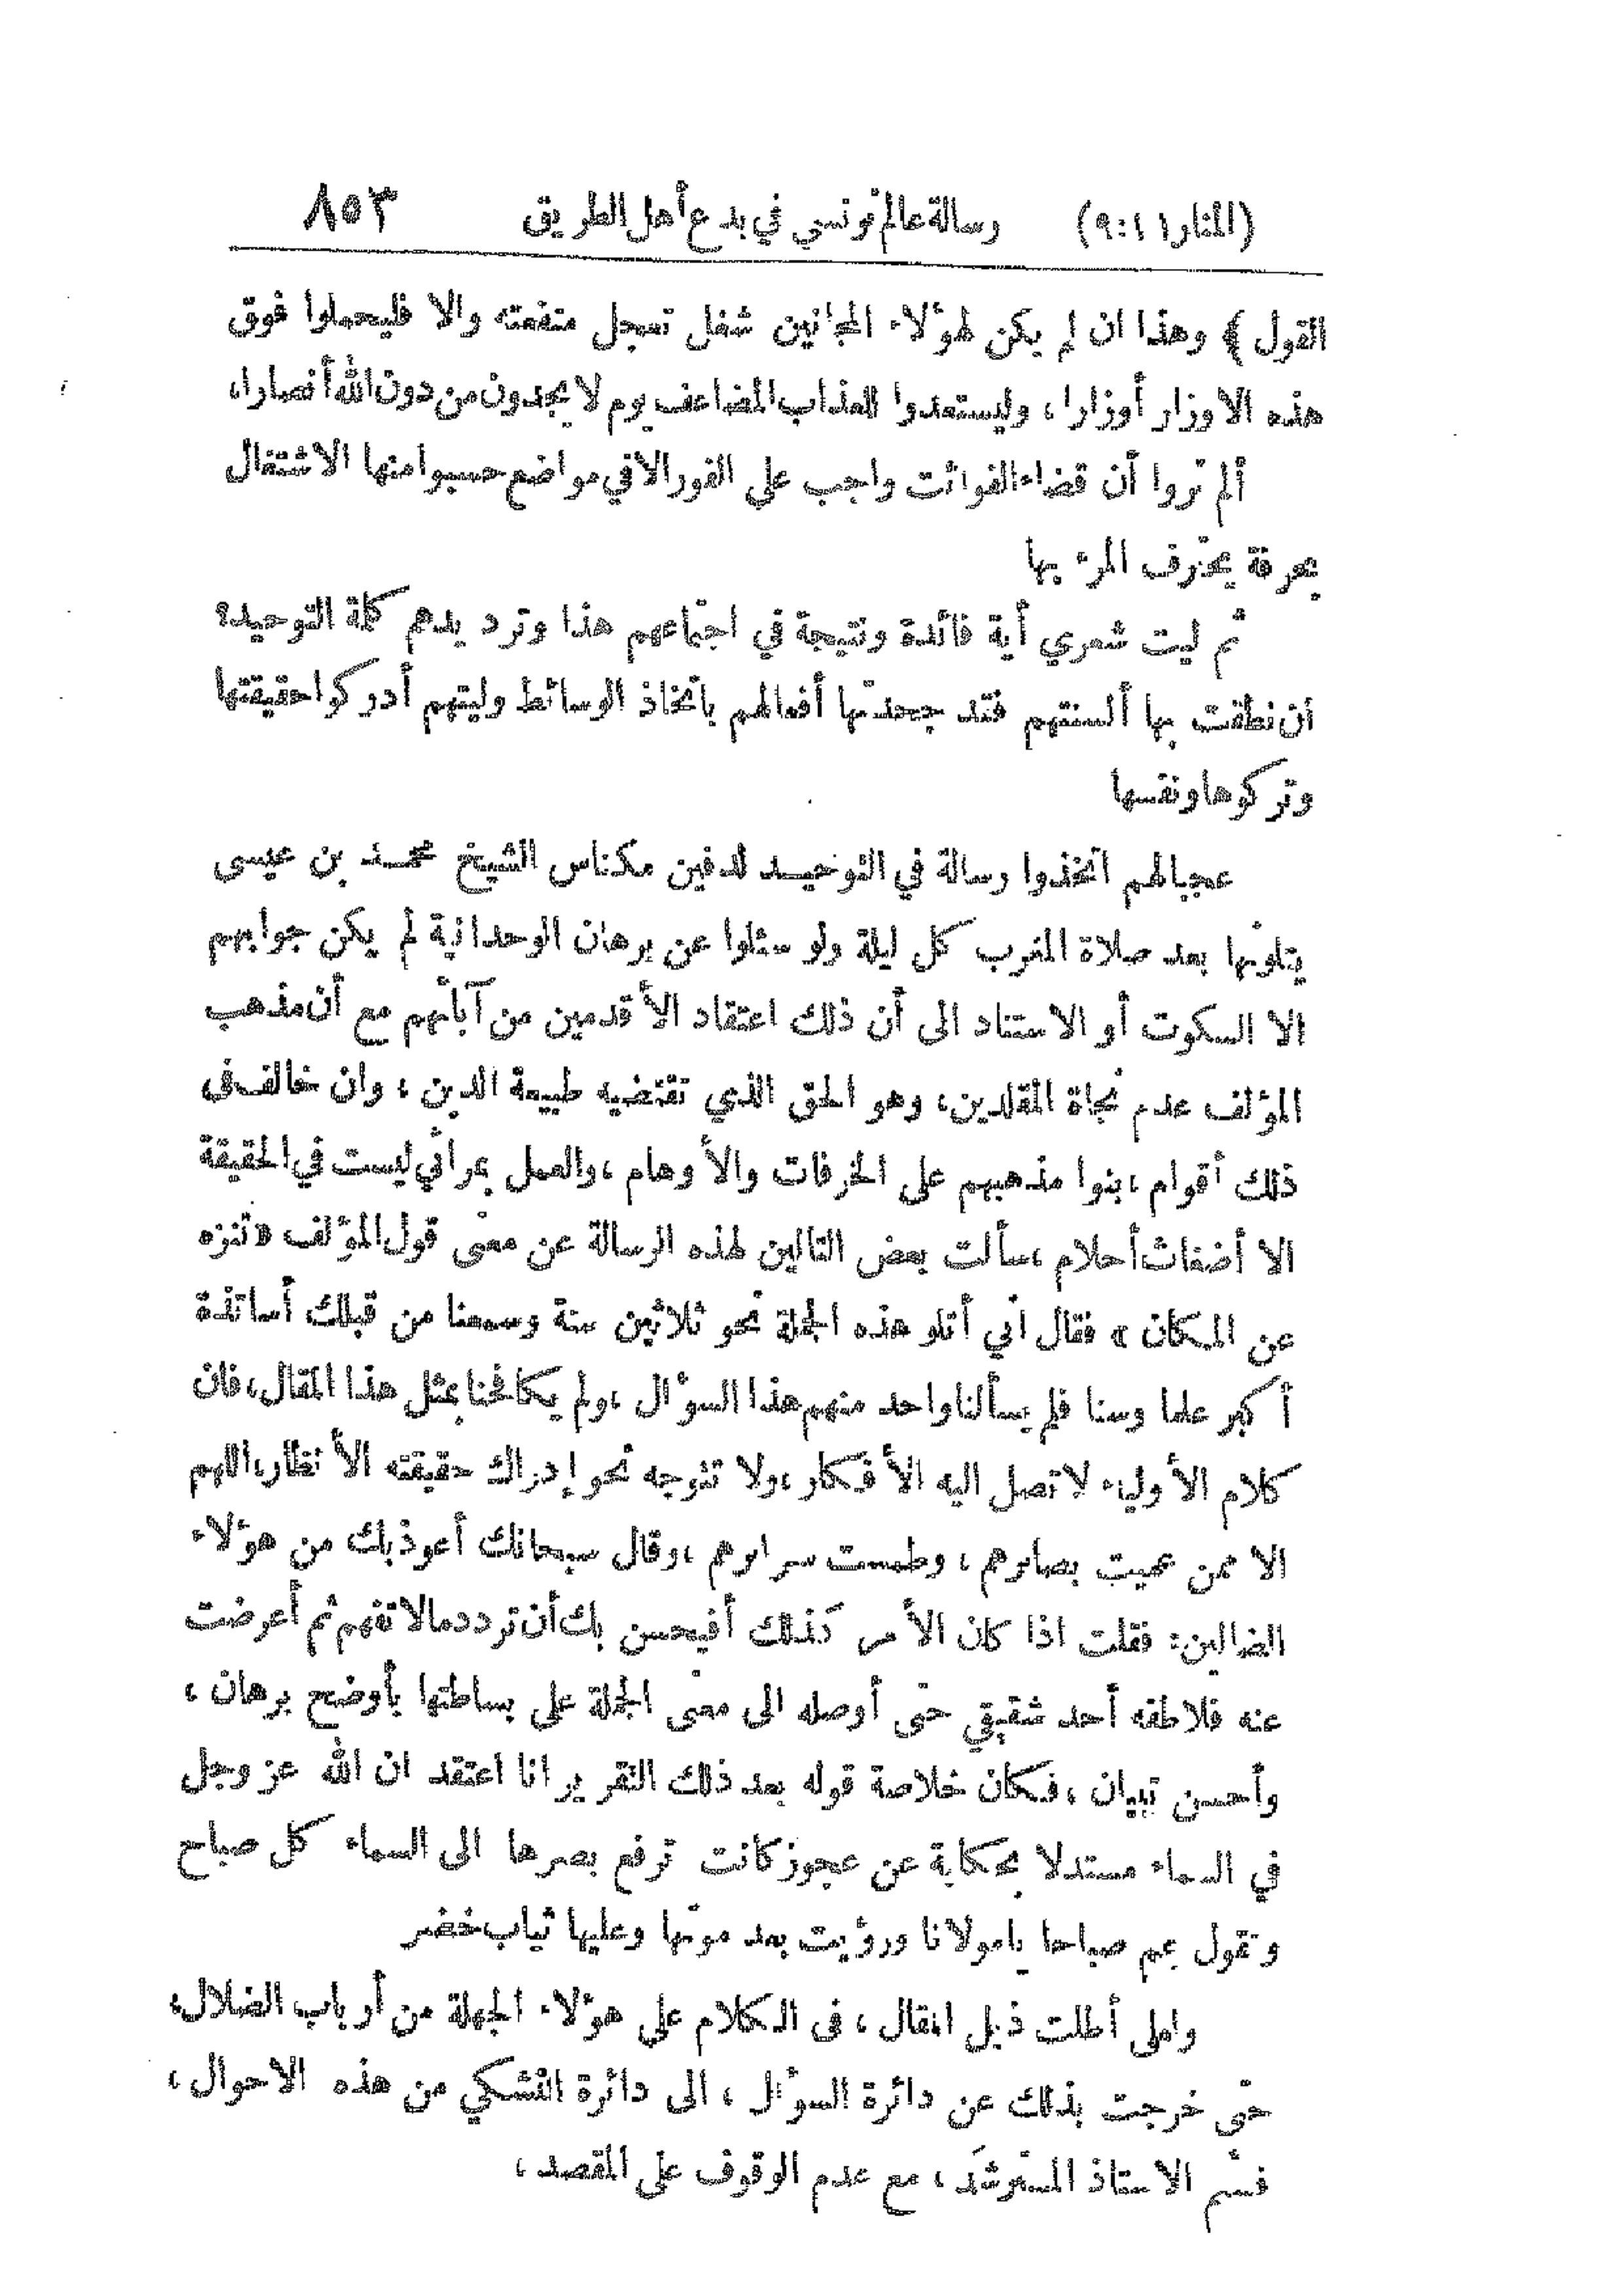 (المنار ١١:٩) رسالة عالم تونسي في بدع أهل الطريق ٨٥٣
القول ﴾ وهذا ان لم يكن لهؤلاء المجانين شغل تعجل منفعته والا فليحملوا فوق
هذه الاوزار أوزارا، وليستعدوا للعذاب المضاعف يوم لا يجدون من دون الله أنصارا،
ألم تروا أن قضاء الفوائت واجب على الفور الا في مواضع حسبوا منها الاشتغال
بحرفة يحترف المرء بها
ثم ليت شعري أية فائدة ونتيجة في اجتماعهم هذا وترديدهم كلمة التوحيد؟
ان نطقت بها ألسنتهم فقد جحدتها أفعالهم باتخاذ الوسائط وليتهم أدركوا حقيقتها
وتركوها ونفسها
عجبا لهم اتخذوا رسالة في التوحيد لدفين مكناس الشيخ محمد بن عيسى
يتلونها بعد صلاة المغرب كل ليلة ولو سئلوا عن برهان الوحدانية لم يكن جوابهم
الا السكوت أو الاستناد الى أن ذلك اعتقاد الأقدمين من آبائهم مع أن مذهب
المؤلف عدم نجاة المقلدين، وهو الحق الذي تقتضيه طبيعة الدين ، وان خالف فى
ذلك أقوام ، بنوا مذهبهم على الخرفات والأوهام ، والعمل بمرائي ليست في الحقيقة
الا أضغاث أحلام ، سألت بعض التالين لهذه الرسالة عن معنى قول المؤلف « تنزه
عن المكان » فقال اني أتلو هذه الجملة نحو ثلاثين سنة وسمعنا من قبلك أساتذة
أكبر علما وسنا فلم يسألنا واحد منهم هذا السؤال ، ولم يكافحنا بمثل هذا المقال، فان
كلام الأولياء لا تصل اليه الأفكار ، ولا تتوجه نحو إدراك حقيقته الأنظار، اللهم
الا ممن عميت بصائرهم ، وطمست سرائرهم ، وقال سبحانك أعوذ بك من هؤلاء
الضالين: فقلت اذا كان الأمر كذلك أفيحسن بك أن تردد مالا تفهم ثم أعرضت
عنه فلاطفه أحد شقيقي حتى أوصله الى معنى الجملة على بساطتها بأوضح برهان ،
وأحسن تبيان ، فكان خلاصة قوله بعد ذلك التقرير انا اعتقد ان الله عز وجل
في السماء مستدلا بحكاية عن عجوز كانت ترفع بصرها الى السماء كل صباح
وتقول عم صباحا يامولانا ورؤيت بعد موتها وعليها ثياب خضر
ولعلى أطلت ذيل المقال ، فى الكلام على هؤلاء الجهلة من أرباب الضلال،
حتى خرجت بذلك عن دائرة السؤال ، الى دائرة التشكي من هذه الاحوال ،
فسم الاستاذ المسترشد ، مع عدم الوقوف على المقصد ،